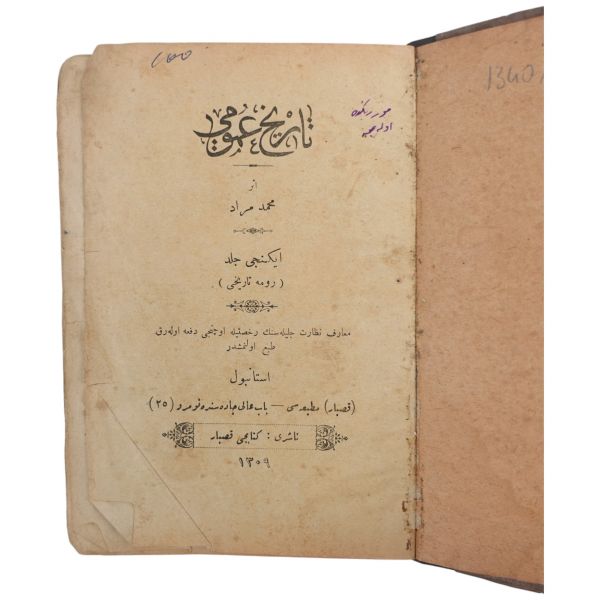 تاريخ عمومى
اثر
محمد مراد
ايكنجى جلد
( رومه تاريخى )
معارف نظارت جليله‌سنك رخصتيله اوچنجى دفعه اوله‌رق
طبع اولنمشدر
استانبول
(قصبار) مطبعه‌سى — باب عالى جاده‌سنده نومرو (٢٥)
ناشرى : كتابجى قصبار
١٣٠٩
1340